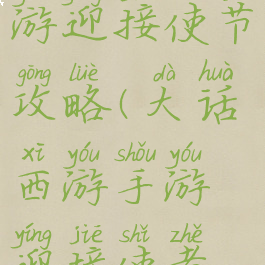 游迎接使节
gōng lüè dà huà
攻略(大话
xī yóu shǒu yóu
西游手游
yíng jiē shǐ zhě
迎接使者